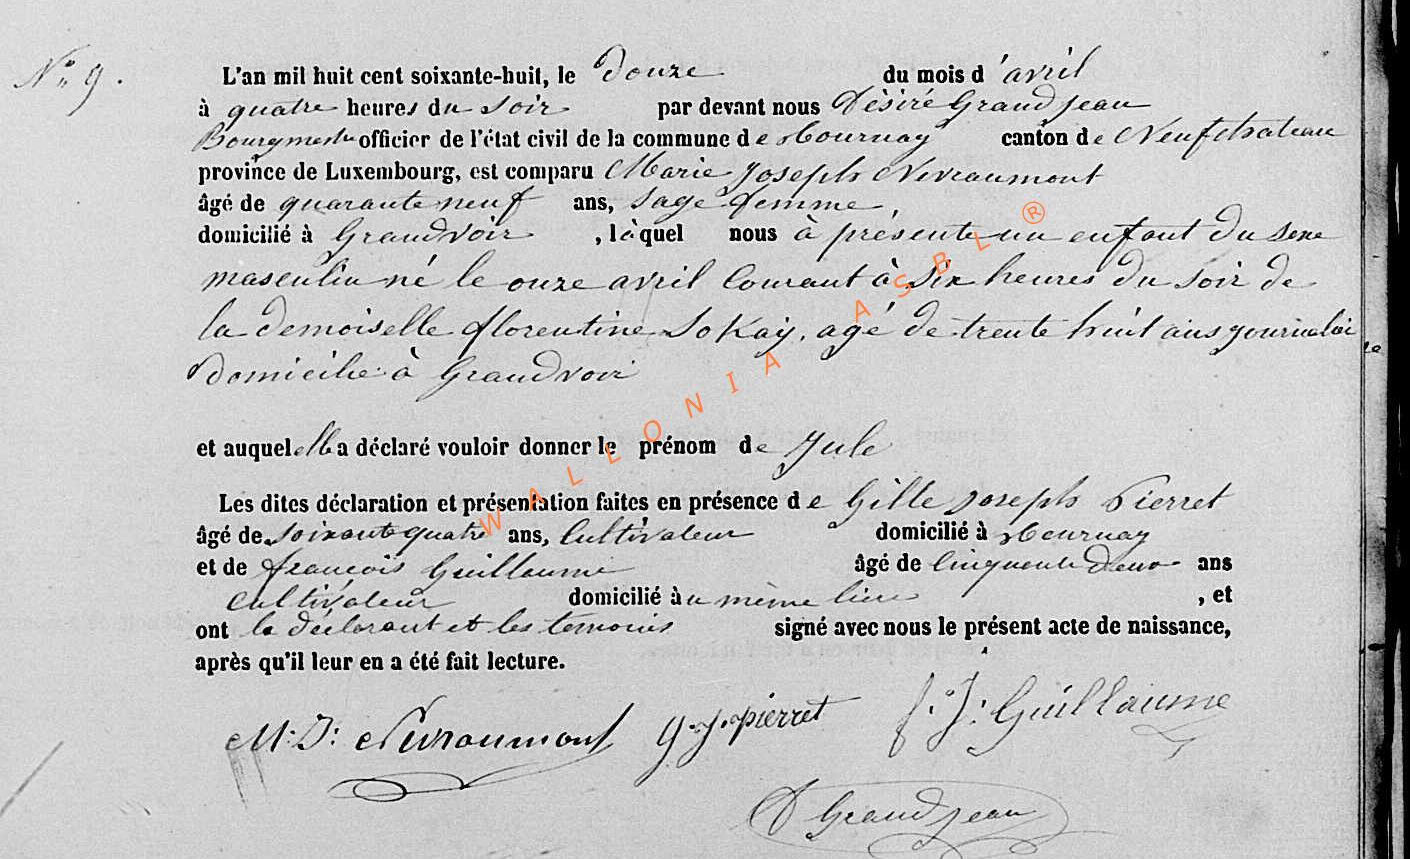 N° 9.
L'an mil huit cent soixante-huit, le douze du mois d'avril
à quatre heures du soir par devant nous Désiré Grandjean
Bourgmestre officier de l'état civil de la commune de Tournay canton de Neufchateau
province de Luxembourg, est comparu Marie Joseph Nevraumont
âgé de quarante neuf ans, sage femme,
domicilié à Grandvoir, làquel nous à présenté un enfant du sexe
masculin né le onze avril Courant à six heures du soir de
la demoiselle florentine Sokay, agé de trente huit ans journalière
Domicilié à Grandvoir
et auquel elle a déclaré vouloir donner le prénom de Jule
Les dites déclaration et présentation faites en présence de Gille Joseph Pierret
âgé de soixante quatre ans, Cultivateur domicilié à Tournay
et de françois Guillaume âgé de Cinquante deux ans
Cultivateur domicilié àu même lieu, et
ont la déclarant et les temoins signé avec nous le présent acte de naissance,
après qu'il leur en a été fait lecture.
M: J: Nevraumont G. J. pierret f. J: Guillaume
D Grandjean
WALLONIA ASBL ®